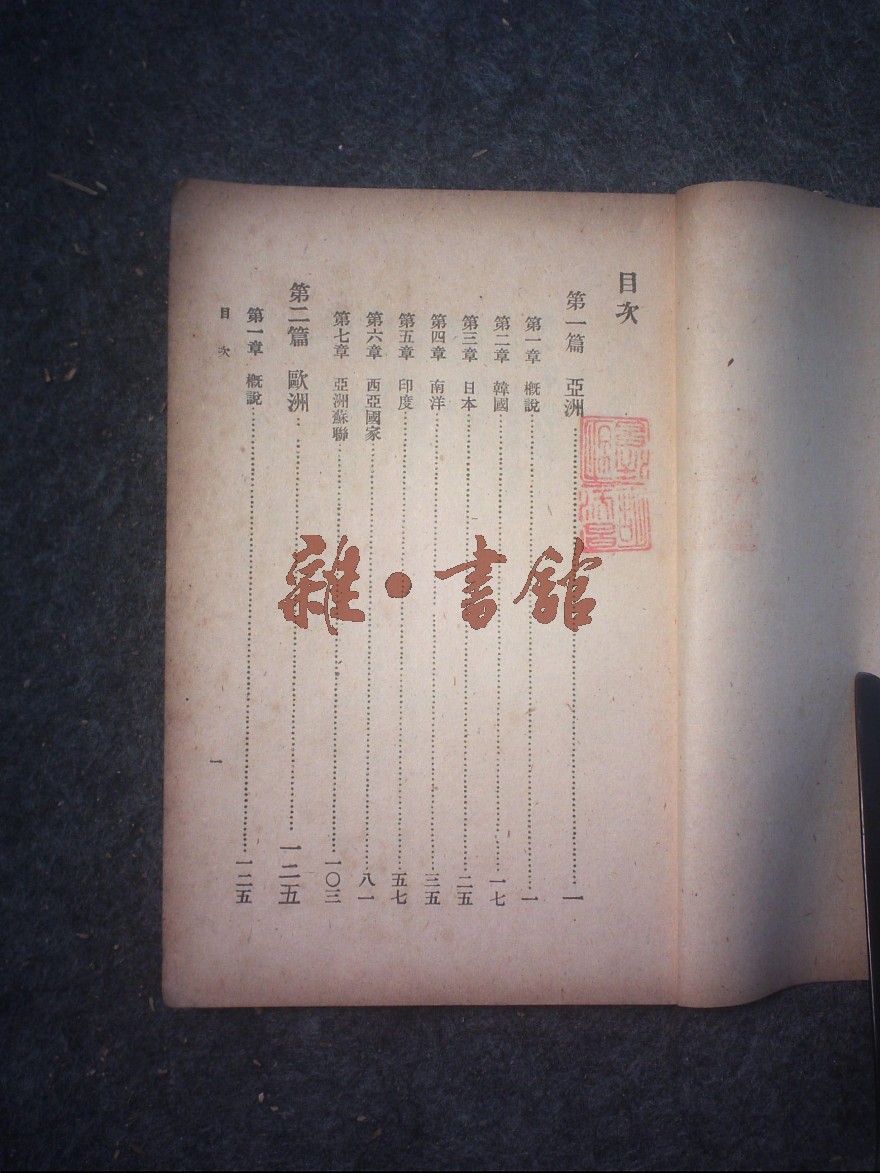 目次
第一篇 亞洲……一
第一章 概說……一
第二章 韓國……一七
第三章 日本……二五
第四章 南洋……三五
第五章 印度……五七
第六章 西亞國家……八一
第七章 亞洲蘇聯……一〇三
第二篇 歐洲……一二五
第一章 概說……一二五
目次
一
雜·書館